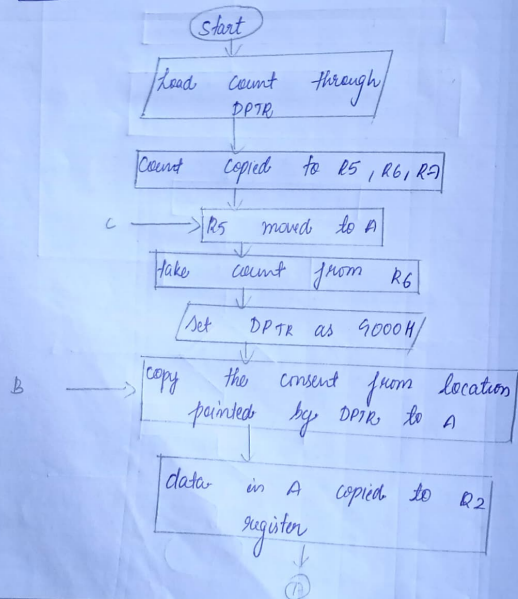 Start
Load count through
DPTR
Count copied to R5, R6, R7
C
R5 moved to A
take count from R6
Set DPTR as 9000H
B
copy the consent from location
pointed by DPTR to A
data in A copied to R2
register
A